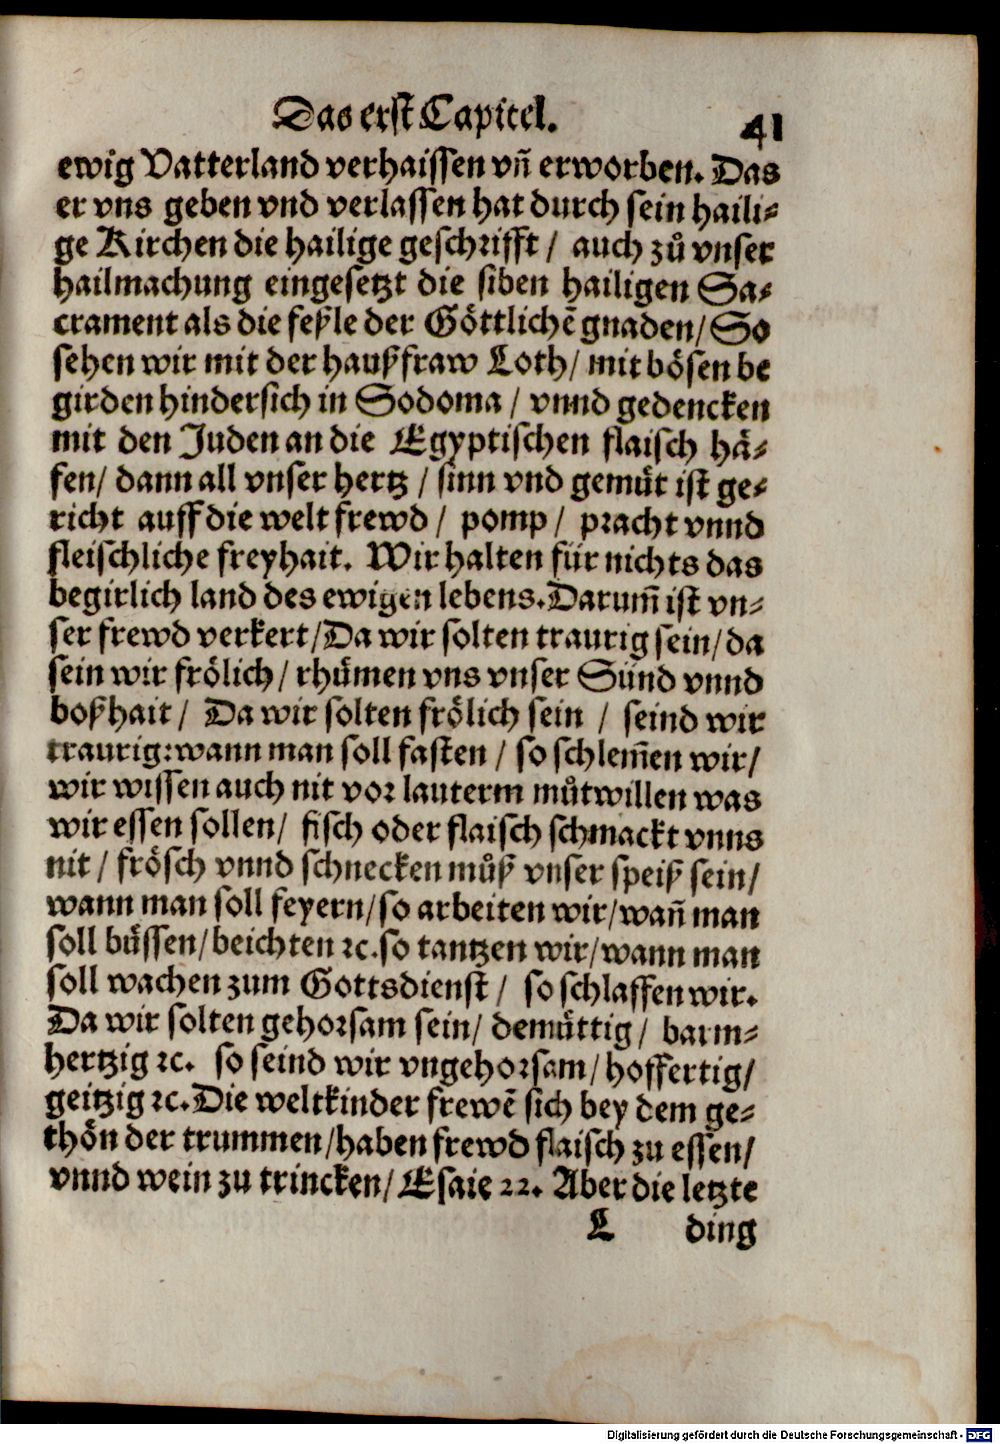 Das erst Capitel. 41
ewig Vatterland verhaissen vñ erworben. Das
er vns geben vnd verlassen hat durch sein haili⸗
ge Kirchen die hailige geschrifft / auch zů vnser
hailmachung eingesetzt die siben hailigen Sa⸗
crament als die feyle der Göttlichē gnaden/ So
sehen wir mit der haußfraw Loth/ mit bösen be
girden hindersich in Sodoma / vnnd gedencken
mit den Juden an die Egyptischen flaisch hä⸗
fen/ dann all vnser hertz / sinn vnd gemüt ist ge⸗
richt auff die welt frewd / pomp / pracht vnnd
fleischliche freyhait. Wir halten für nichts das
begirlich land des ewigen lebens. Darum̃ ist vn⸗
ser frewd verkert/ Da wir solten traurig sein/ da
sein wir frölich/ rhümen vns vnser Sünd vnnd
boßhait / Da wir solten frölich sein / seind wir
traurig: wann man soll fasten / so schlem̃en wir/
wir wissen auch nit vor lauterm můtwillen was
wir essen sollen/ fisch oder flaisch schmackt vnns
nit / frösch vnnd schnecken můß vnser speiß sein/
wann man soll feyern/ so arbeiten wir/ wañ man
soll büssen/ beichten ꝛc. so tantzen wir/ wann man
soll wachen zum Gottsdienst / so schlaffen wir.
Da wir solten gehorsam sein/ demüttig / barm⸗
hertzig ꝛc. so seind wir vngehorsam/ hoffertig/
geitzig ꝛc. Die weltkinder frewē sich bey dem ge⸗
thön der trummen/ haben frewd flaisch zu essen/
vnnd wein zu trincken/ Esaie 22. Aber die letzte
L ding
Digitalisierung gefördert durch die Deutsche Forschungsgemeinschaft - DFG